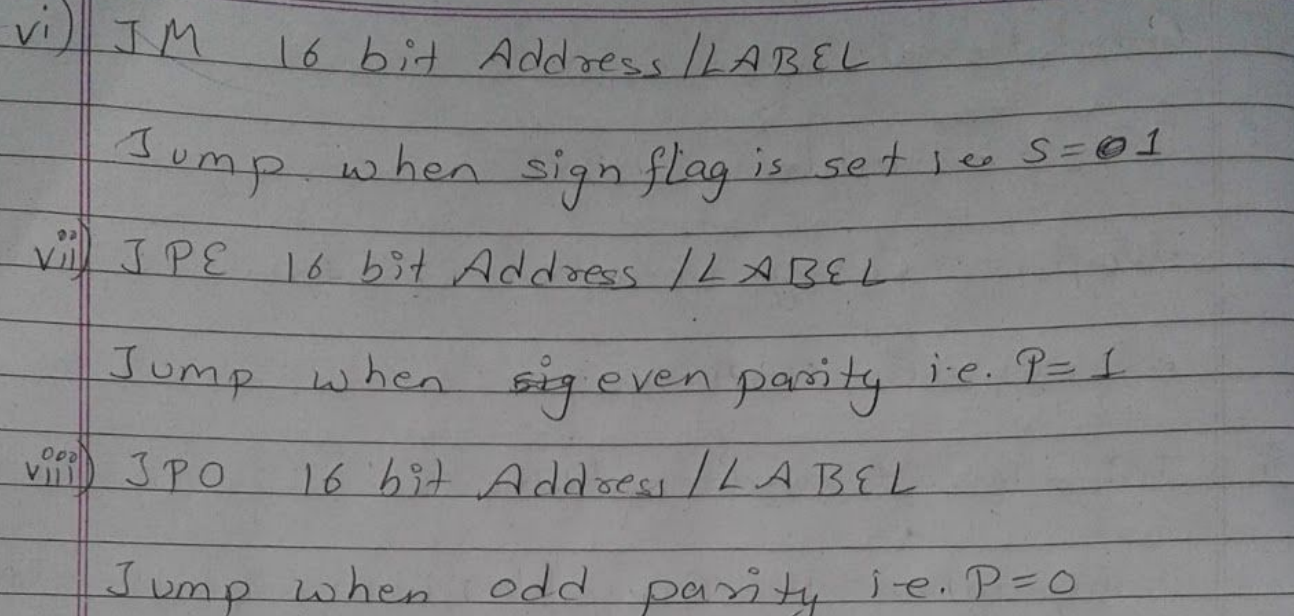 vi) JM 16 bit Address /LABEL
Jump when sign flag is set i.e. S=01
vii) JPE 16 bit Address /LABEL
Jump when sig even parity i.e. P=1
viii) JPO 16 bit Address /LABEL
Jump when odd parity i.e. P=0